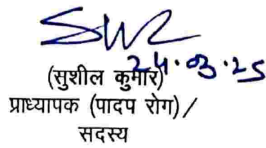 24.03.25
(सुशील कुमार)
प्राध्यापक (पादप रोग)/
सदस्य